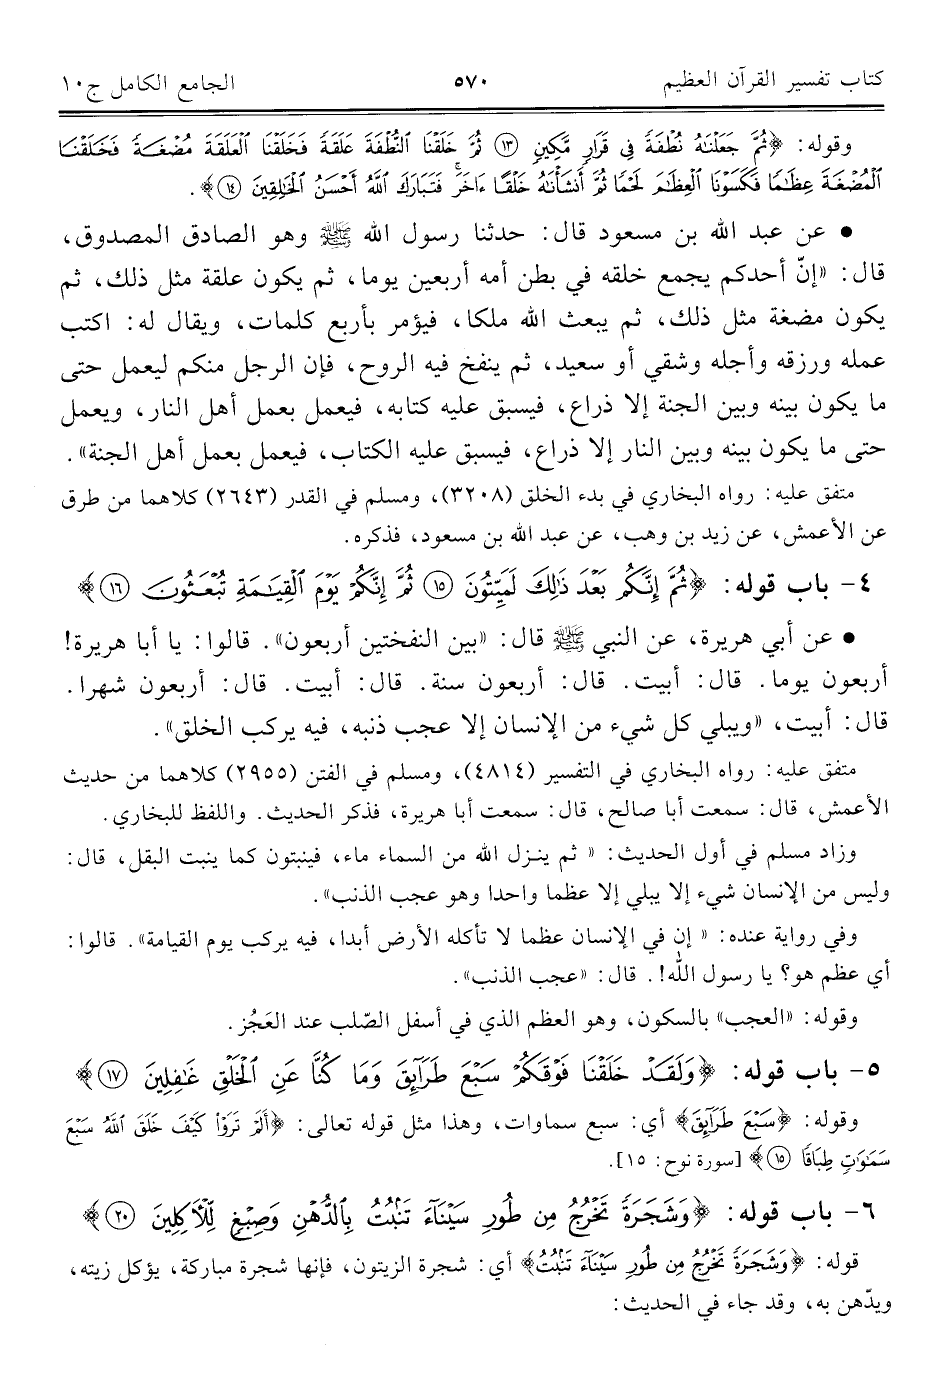 كتاب تفسير القرآن العظيم ٥٧٠ الجامع الكامل ج١٠
وقوله: ﴿ثُمَّ جَعَلْنَٰهُ نُطْفَةً فِي قَرَارٍ مَّكِينٍ ۝١٣ ثُمَّ خَلَقْنَا ٱلنُّطْفَةَ عَلَقَةً فَخَلَقْنَا ٱلْعَلَقَةَ مُضْغَةً فَخَلَقْنَا
ٱلْمُضْغَةَ عِظَٰمًا فَكَسَوْنَا ٱلْعِظَٰمَ لَحْمًا ثُمَّ أَنشَأْنَٰهُ خَلْقًا ءَاخَرَ ۚ فَتَبَارَكَ ٱللَّهُ أَحْسَنُ ٱلْخَٰلِقِينَ ۝١٤﴾.
• عن عبد الله بن مسعود قال: حدثنا رسول الله ﷺ وهو الصادق المصدوق،
قال: «إنّ أحدكم يجمع خلقه في بطن أمه أربعين يوما، ثم يكون علقة مثل ذلك، ثم
يكون مضغة مثل ذلك، ثم يبعث الله ملكا، فيؤمر بأربع كلمات، ويقال له: اكتب
عمله ورزقه وأجله وشقي أو سعيد، ثم ينفخ فيه الروح، فإن الرجل منكم ليعمل حتى
ما يكون بينه وبين الجنة إلا ذراع، فيسبق عليه كتابه، فيعمل بعمل أهل النار، ويعمل
حتى ما يكون بينه وبين النار إلا ذراع، فيسبق عليه الكتاب، فيعمل بعمل أهل الجنة».
متفق عليه: رواه البخاري في بدء الخلق (٣٢٠٨)، ومسلم في القدر (٢٦٤٣) كلاهما من طرق
عن الأعمش، عن زيد بن وهب، عن عبد الله بن مسعود، فذكره.
٤- باب قوله: ﴿ثُمَّ إِنَّكُم بَعْدَ ذَٰلِكَ لَمَيِّتُونَ ۝١٥ ثُمَّ إِنَّكُمْ يَوْمَ ٱلْقِيَٰمَةِ تُبْعَثُونَ ۝١٦﴾
• عن أبي هريرة، عن النبي ﷺ قال: «بين النفختين أربعون». قالوا: يا أبا هريرة!
أربعون يوما. قال: أبيت. قال: أربعون سنة. قال: أبيت. قال: أربعون شهرا.
قال: أبيت، «ويبلي كل شيء من الإنسان إلا عجب ذنبه، فيه يركب الخلق».
متفق عليه: رواه البخاري في التفسير (٤٨١٤)، ومسلم في الفتن (٢٩٥٥) كلاهما من حديث
الأعمش، قال: سمعت أبا صالح، قال: سمعت أبا هريرة، فذكر الحديث. واللفظ للبخاري.
وزاد مسلم في أول الحديث: « ثم ينزل الله من السماء ماء، فينبتون كما ينبت البقل، قال:
وليس من الإنسان شيء إلا يبلي إلا عظما واحدا وهو عجب الذنب».
وفي رواية عنده: « إن في الإنسان عظما لا تأكله الأرض أبدا، فيه يركب يوم القيامة». قالوا:
أي عظم هو؟ يا رسول الله!. قال: «عجب الذنب».
وقوله: «العجب» بالسكون، وهو العظم الذي في أسفل الصّلب عند العَجُز.
٥- باب قوله: ﴿وَلَقَدْ خَلَقْنَا فَوْقَكُمْ سَبْعَ طَرَآئِقَ وَمَا كُنَّا عَنِ ٱلْخَلْقِ غَٰفِلِينَ ۝١٧﴾
وقوله: ﴿سَبْعَ طَرَآئِقَ﴾ أي: سبع سماوات، وهذا مثل قوله تعالى: ﴿أَلَمْ تَرَوْا۟ كَيْفَ خَلَقَ ٱللَّهُ سَبْعَ
سَمَٰوَٰتٍ طِبَاقًا ۝١٥﴾ [سورة نوح: ١٥].
٦- باب قوله: ﴿وَشَجَرَةً تَخْرُجُ مِن طُورِ سَيْنَآءَ تَنۢبُتُ بِٱلدُّهْنِ وَصِبْغٍ لِّلْءَاكِلِينَ ۝٢٠﴾
قوله: ﴿وَشَجَرَةً تَخْرُجُ مِن طُورِ سَيْنَآءَ تَنۢبُتُ﴾ أي: شجرة الزيتون، فإنها شجرة مباركة، يؤكل زيته،
ويدّهن به، وقد جاء في الحديث: